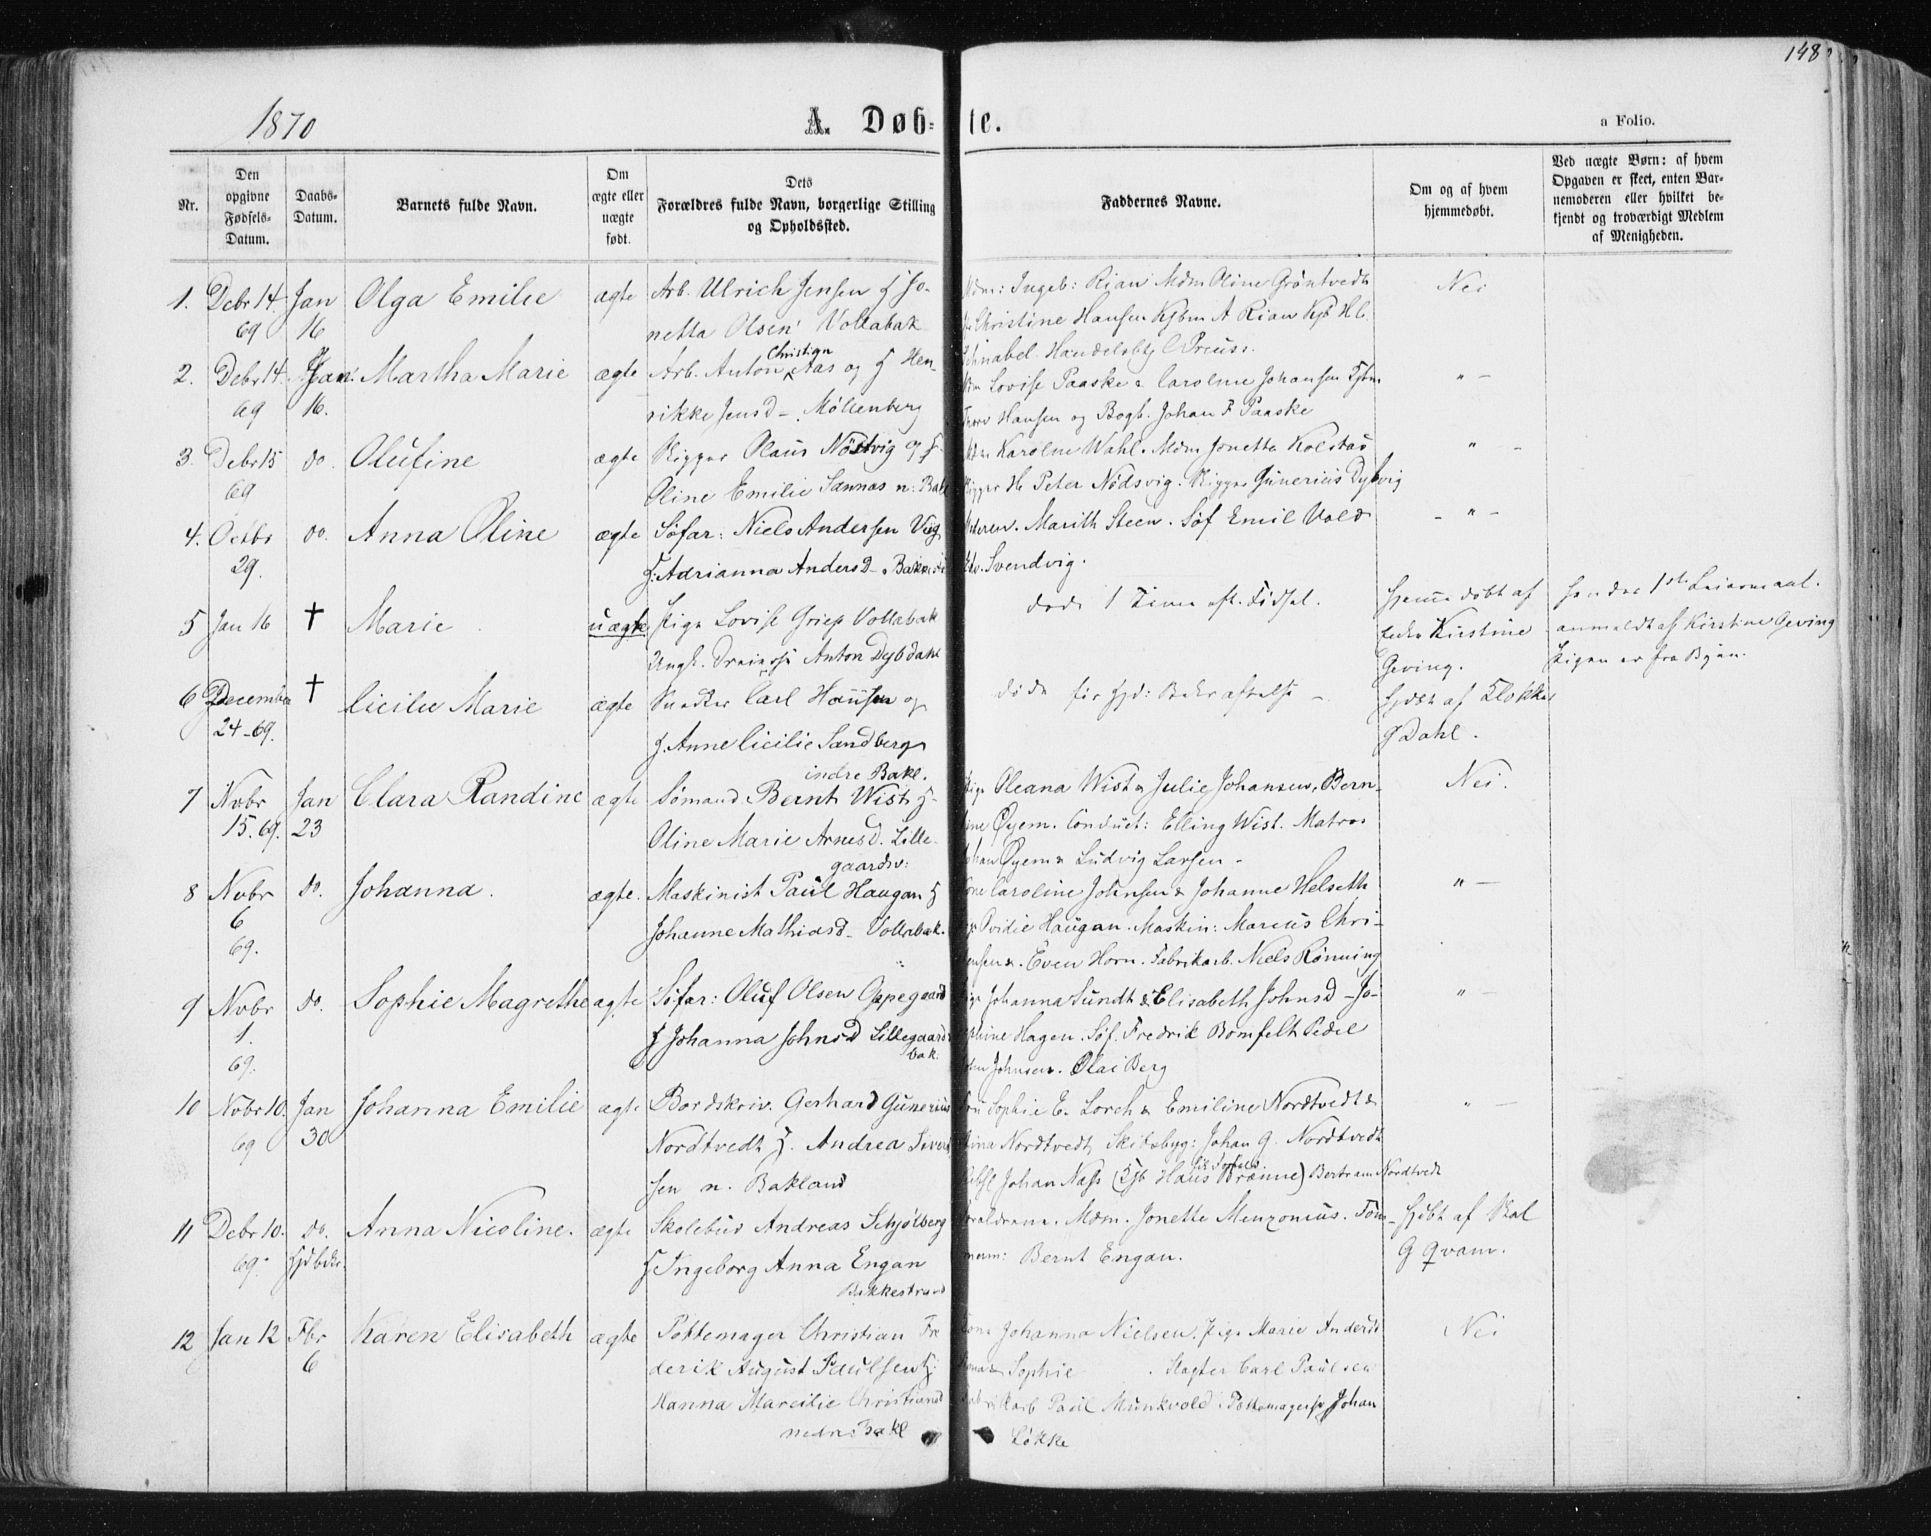 148
1870
A. Døb-te.
a Folio.
Nr.
Den opgivne Fødsels-Datum.
Daabs-Datum.
Barnets fulde Navn.
Om ægte eller uægte født.
Dets Forældres fulde Navn, borgerlige Stilling og Opholdssted.
Faddernes Navne.
Om og af hvem hjemmedøbt.
Ved uægte Børn: af hvem Opgaven er skeet, enten Barnemoderen eller hvilket bekjendt og troværdigt Medlem af Menigheden.
1. Debr 14 Jan Olga Emilie ægte Arb. Ulrich Jensen Jo- Ingeb: Rian Mdm Oline Grøntvedt Nei
69 16 netta Olsen Vollabak Christine Hansen Kjbm A Rian Kjb H C.
Christian Schnabel. Handelsbtj C Preuss.
2. Debr 14 Jan Martha Marie ægte Arb. Anton Aas og Hen- Lovise Paaske & Caroline Johansen " —
69 16. rikke Jensd - Møllenberg Hansen og Bogb. Johan F Paaske
3. Debr 15 do. Olufine ægte Rigger Olaus Nøstvig og Karoline Wahl. Mdm Jonetta Kolstad " -
69 Oline Emilie Sannas n: Bakl Rigger H Peter Nødsvig. Rigger Gunerius Dybvig
4. Octbr do. Anna Oline ægte Søfar: Niels Andersen Vig Marith Steen. Søf Emil Vold - " -
29. Adrianna Andersd - Svendvig.
5 Jan 16 † Marie uægte Pige Lovise Griep Vollabak døde 1 Time eft. Fødsel. hjemmedøbt af 1ste Leiermaal.
Ungk. Anton Dybdahl Kirstine anmeldt af Kirstine Geving
Geving. Pigen er fra Byen.
6 December † Cicilie Marie ægte Snedker Carl Hansen og døde før Hjd: Bekræftelse - Hjdbt af Klokker
24-69. Anne Cicilie Sandberg G Dahl.
indre Bakl.
7 Novbr Jan Clara Randine ægte Sømand Bernt Wist Pige Oleana Wist & Julie Johansen, Bern- Nei.
15. 69. 23 Oline Marie Arnesd. Lille- Øyem. Conduct: Elling Wist. Matros
gaardsv: Johan Øyem & Ludvig Larsen -
8 Novbr do. Johanna. ægte. Maskinist Paul Haugan Kone Caroline Johnsen & Johanne Helseth " —
6 Johanne Mathiasd - Vollabak. Haugan. Maskin: Marcus Chri-
69. Even Horn. Fabrikarb. Niels Rønning
9 Novbr do. Sophie Magrethe ægte Søfar: Oluf Olsen Oppegaard Pige Johanna Lundt & Elisabeth Johnsd - Jo- " —
1. Johanna Johnsd Lillegaards Hagen. Søf. Fredrik Bomfelt Pedel
69. bak. Johnsen. Olai Berg
10 Novbr 10. Jan Johanna Emilie ægte Bordskriv. Gerhard Gunerius Sophie E. Lorch & Emiline Nordtvedt & " —
69 30 Nordtvedt Andrea Sivert- Nordtvedt Skibsbyg: Johan G. Nordtvedt
sen n. Bakland Johan Nass (Kjb Hans Brønne) Bertram Nordtvedt
11 Debr 10. do. Anna Nicoline. ægte Skolebud Andreas Schjølberg Forældrene. Mdm. Jonette Menzonius. Tøm- Hjdbt af Skol
69. Ingeborg Anna Engan Bernt Engan. G Qvam.
Bakkestrand
12 Jan 12 Fbr Karen Elisabeth ægte Pottemager Christian Fre- Kone Johanna Nielsen. Pige Marie Andersd Nei
6 derik August Paulsen Sophie . Slagter Carl Paulsen
Hanna Marcilie Christiansd Fabrikarb Paul Munkvold. Pottemagersv Johan
nedre Bakl Løkke